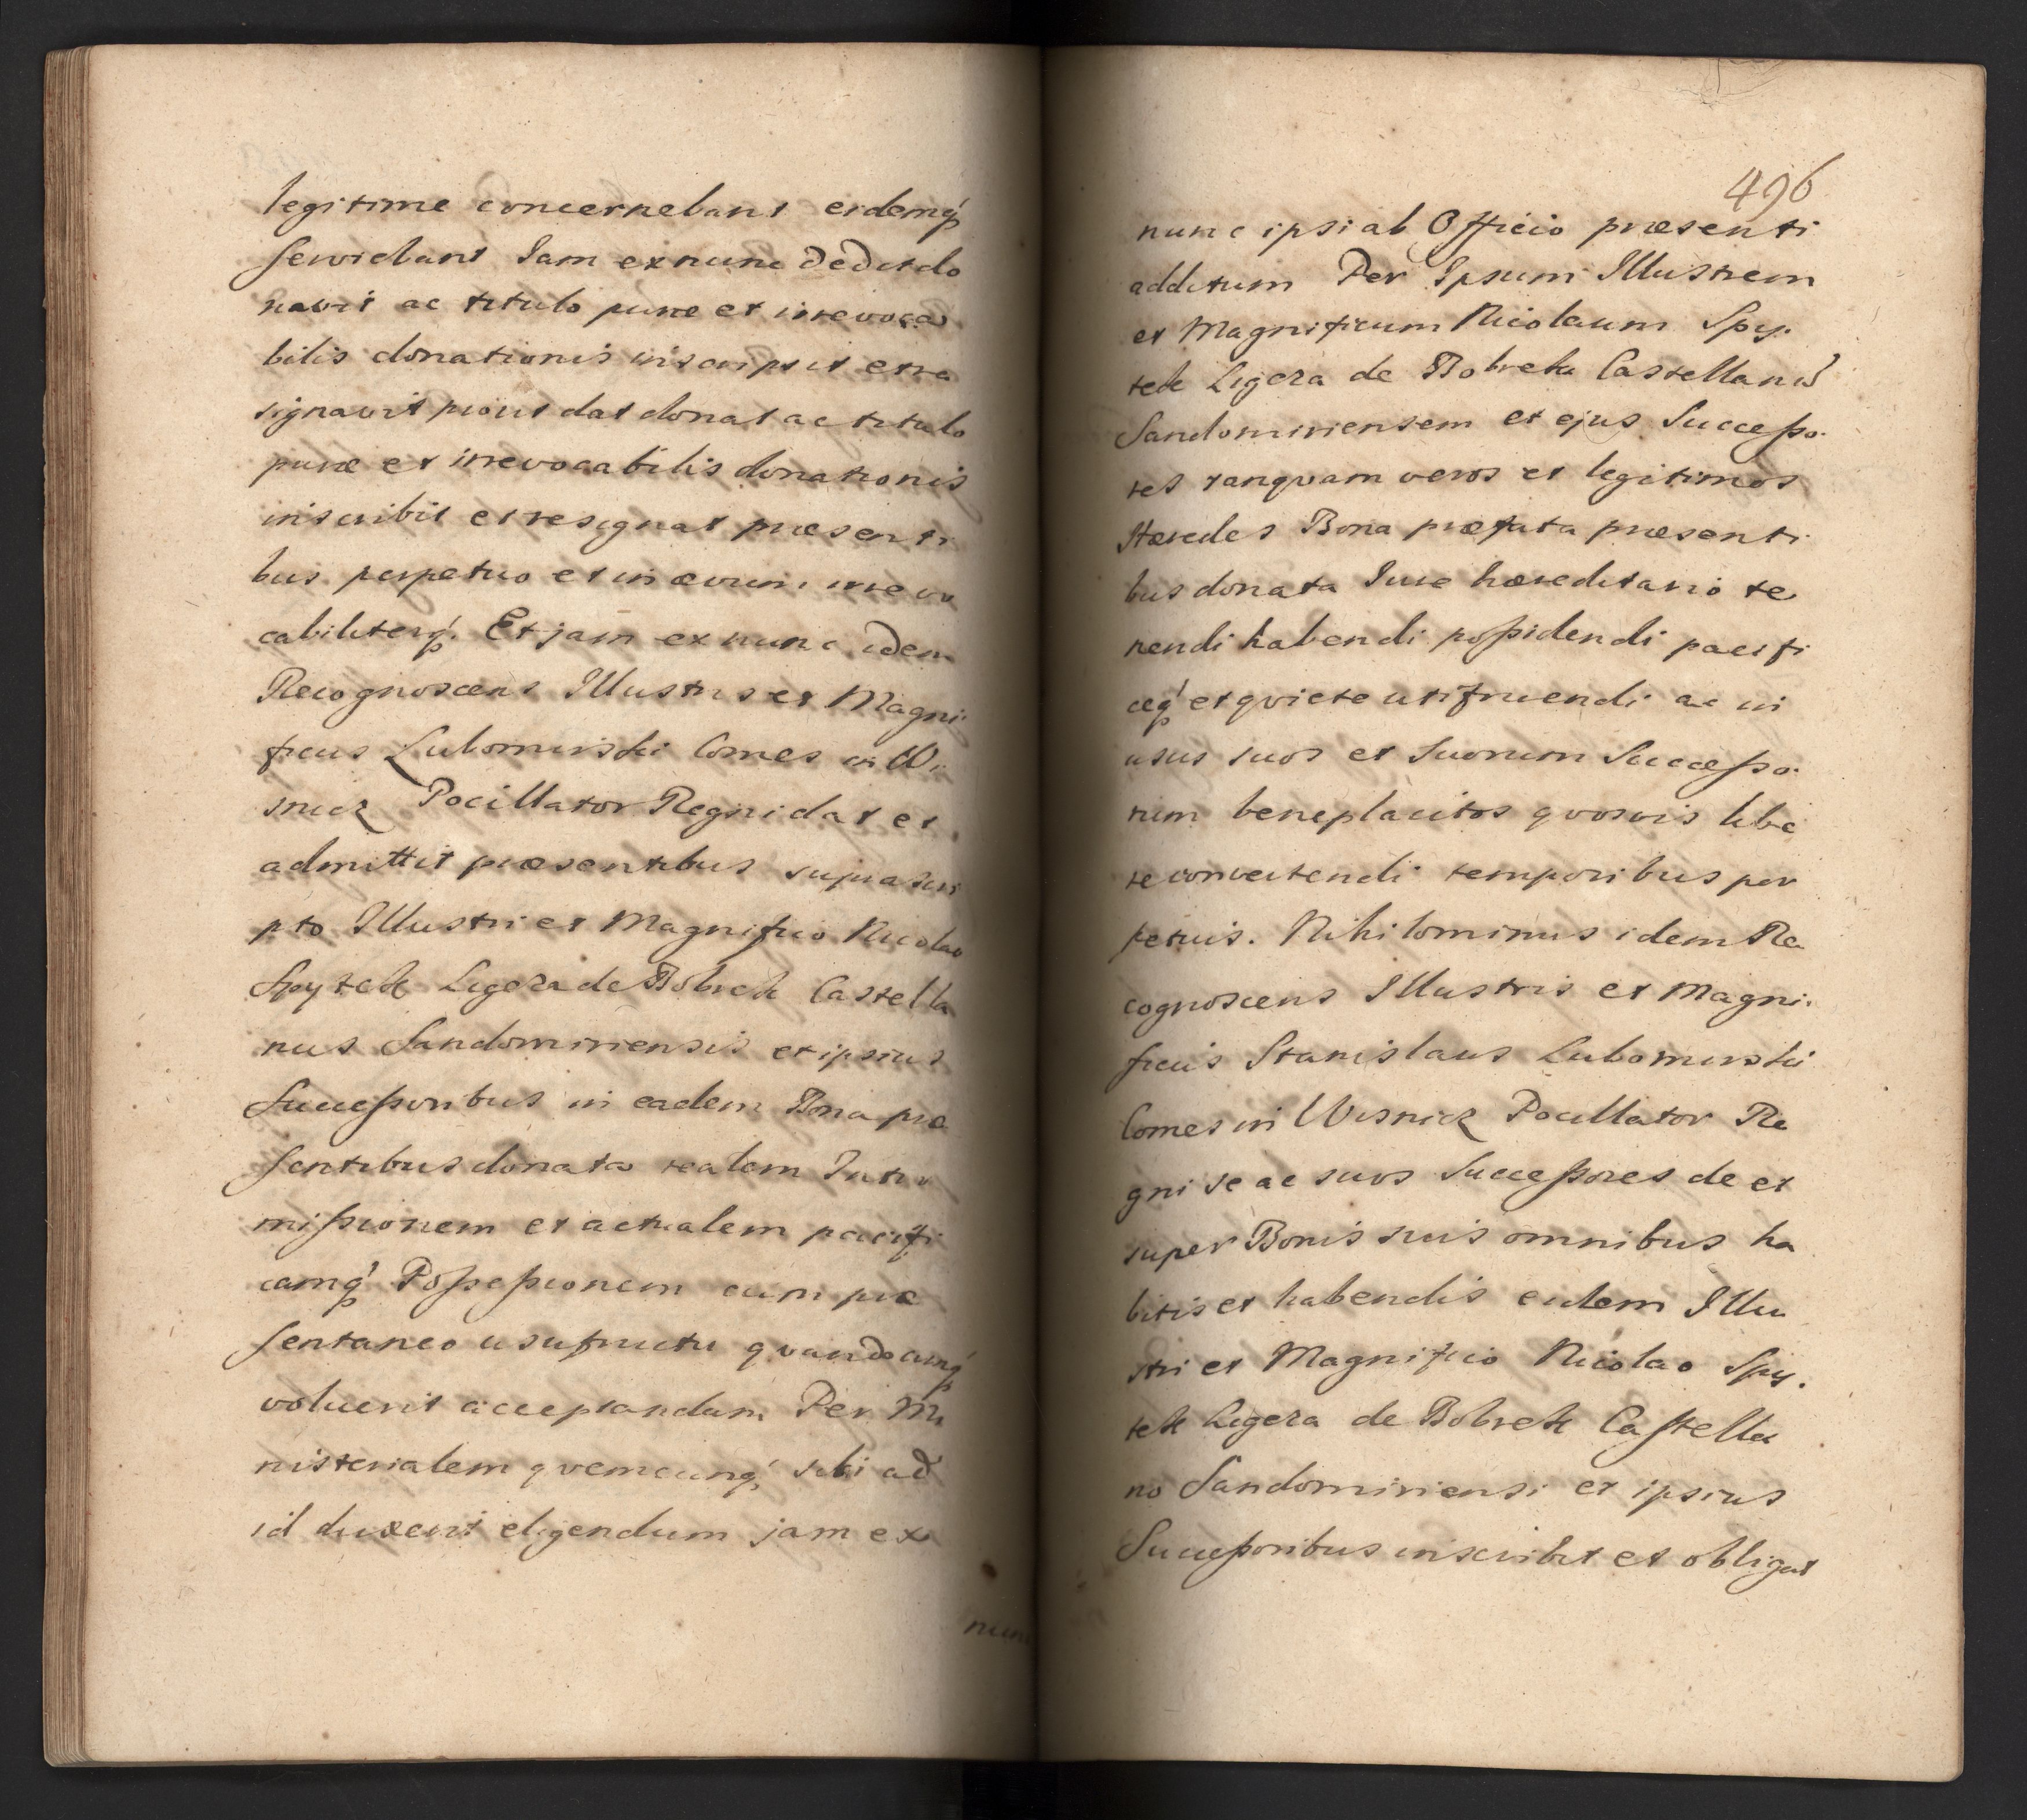 legitime concernebant eidemq́
serviebant Jam ex nunc dedit do
navit ac titulo puræ et irrevoca
bilis donationis inscripsit et re
signavit prout dat donat ac titulo
puræ et irrevocabilis donationis
inscribit et resignat præsenti
bus perpetuo et in ævum irrevo
cabiliterq́. Et jam ex nunc idem
Recognoscens Illustris et Magni
ficus Lubomirski Comes in Wi
snicz Pocillator Regni dat et
admittit præsentibus suprascri
pto Illustri et Magnifico Nicolao
Spytek Ligeza de Bobrek Castella
nus Sandomiriensis et ipsius
Successoribus in eadem Bona præ
sentibus donata realem Intro
missionem et actualem pacifi
camq́ Possessionem cum præ
sentaneo usufructu quandocunq́
voluerit acceptandam Per Mi
nisterialem qvemcunq́ sibi ad
id duxerit eligendum jam ex
nunc
496
nunc ipsi ab Officio præsenti
additum Per Ipsum Illustrem
et Magnificum Nicolaum Spy.
tek Ligeza de Bobrek Castellanū
Sandomiriensem et ejus Successo.
res tanqvam veros et legitimos
Hæredes Bona præfata præsenti
bus donata Jure hæreditario te
nendi habendi possidendi pacifi
ceq́ et qviete utifruendi ac in
usus suos et Suorum Successo.
rum beneplacitos qvosvis libe
re convertendi temporibus per
petuis. Nihilominus idem Re
cognoscens Illustris et Magni.
ficus Stanislaus Lubomirski
Comes in Wisnicz Pocillator Re
gni se ac suos Successores de et
super Bonis suis omnibus ha
bitis et habendis eidem Illu
stri et Magnifico Nicolao Spy.
tek Ligeza de Bobrek Castella
no Sandomiriensi et ipsius
Successoribus inscribit et obligat